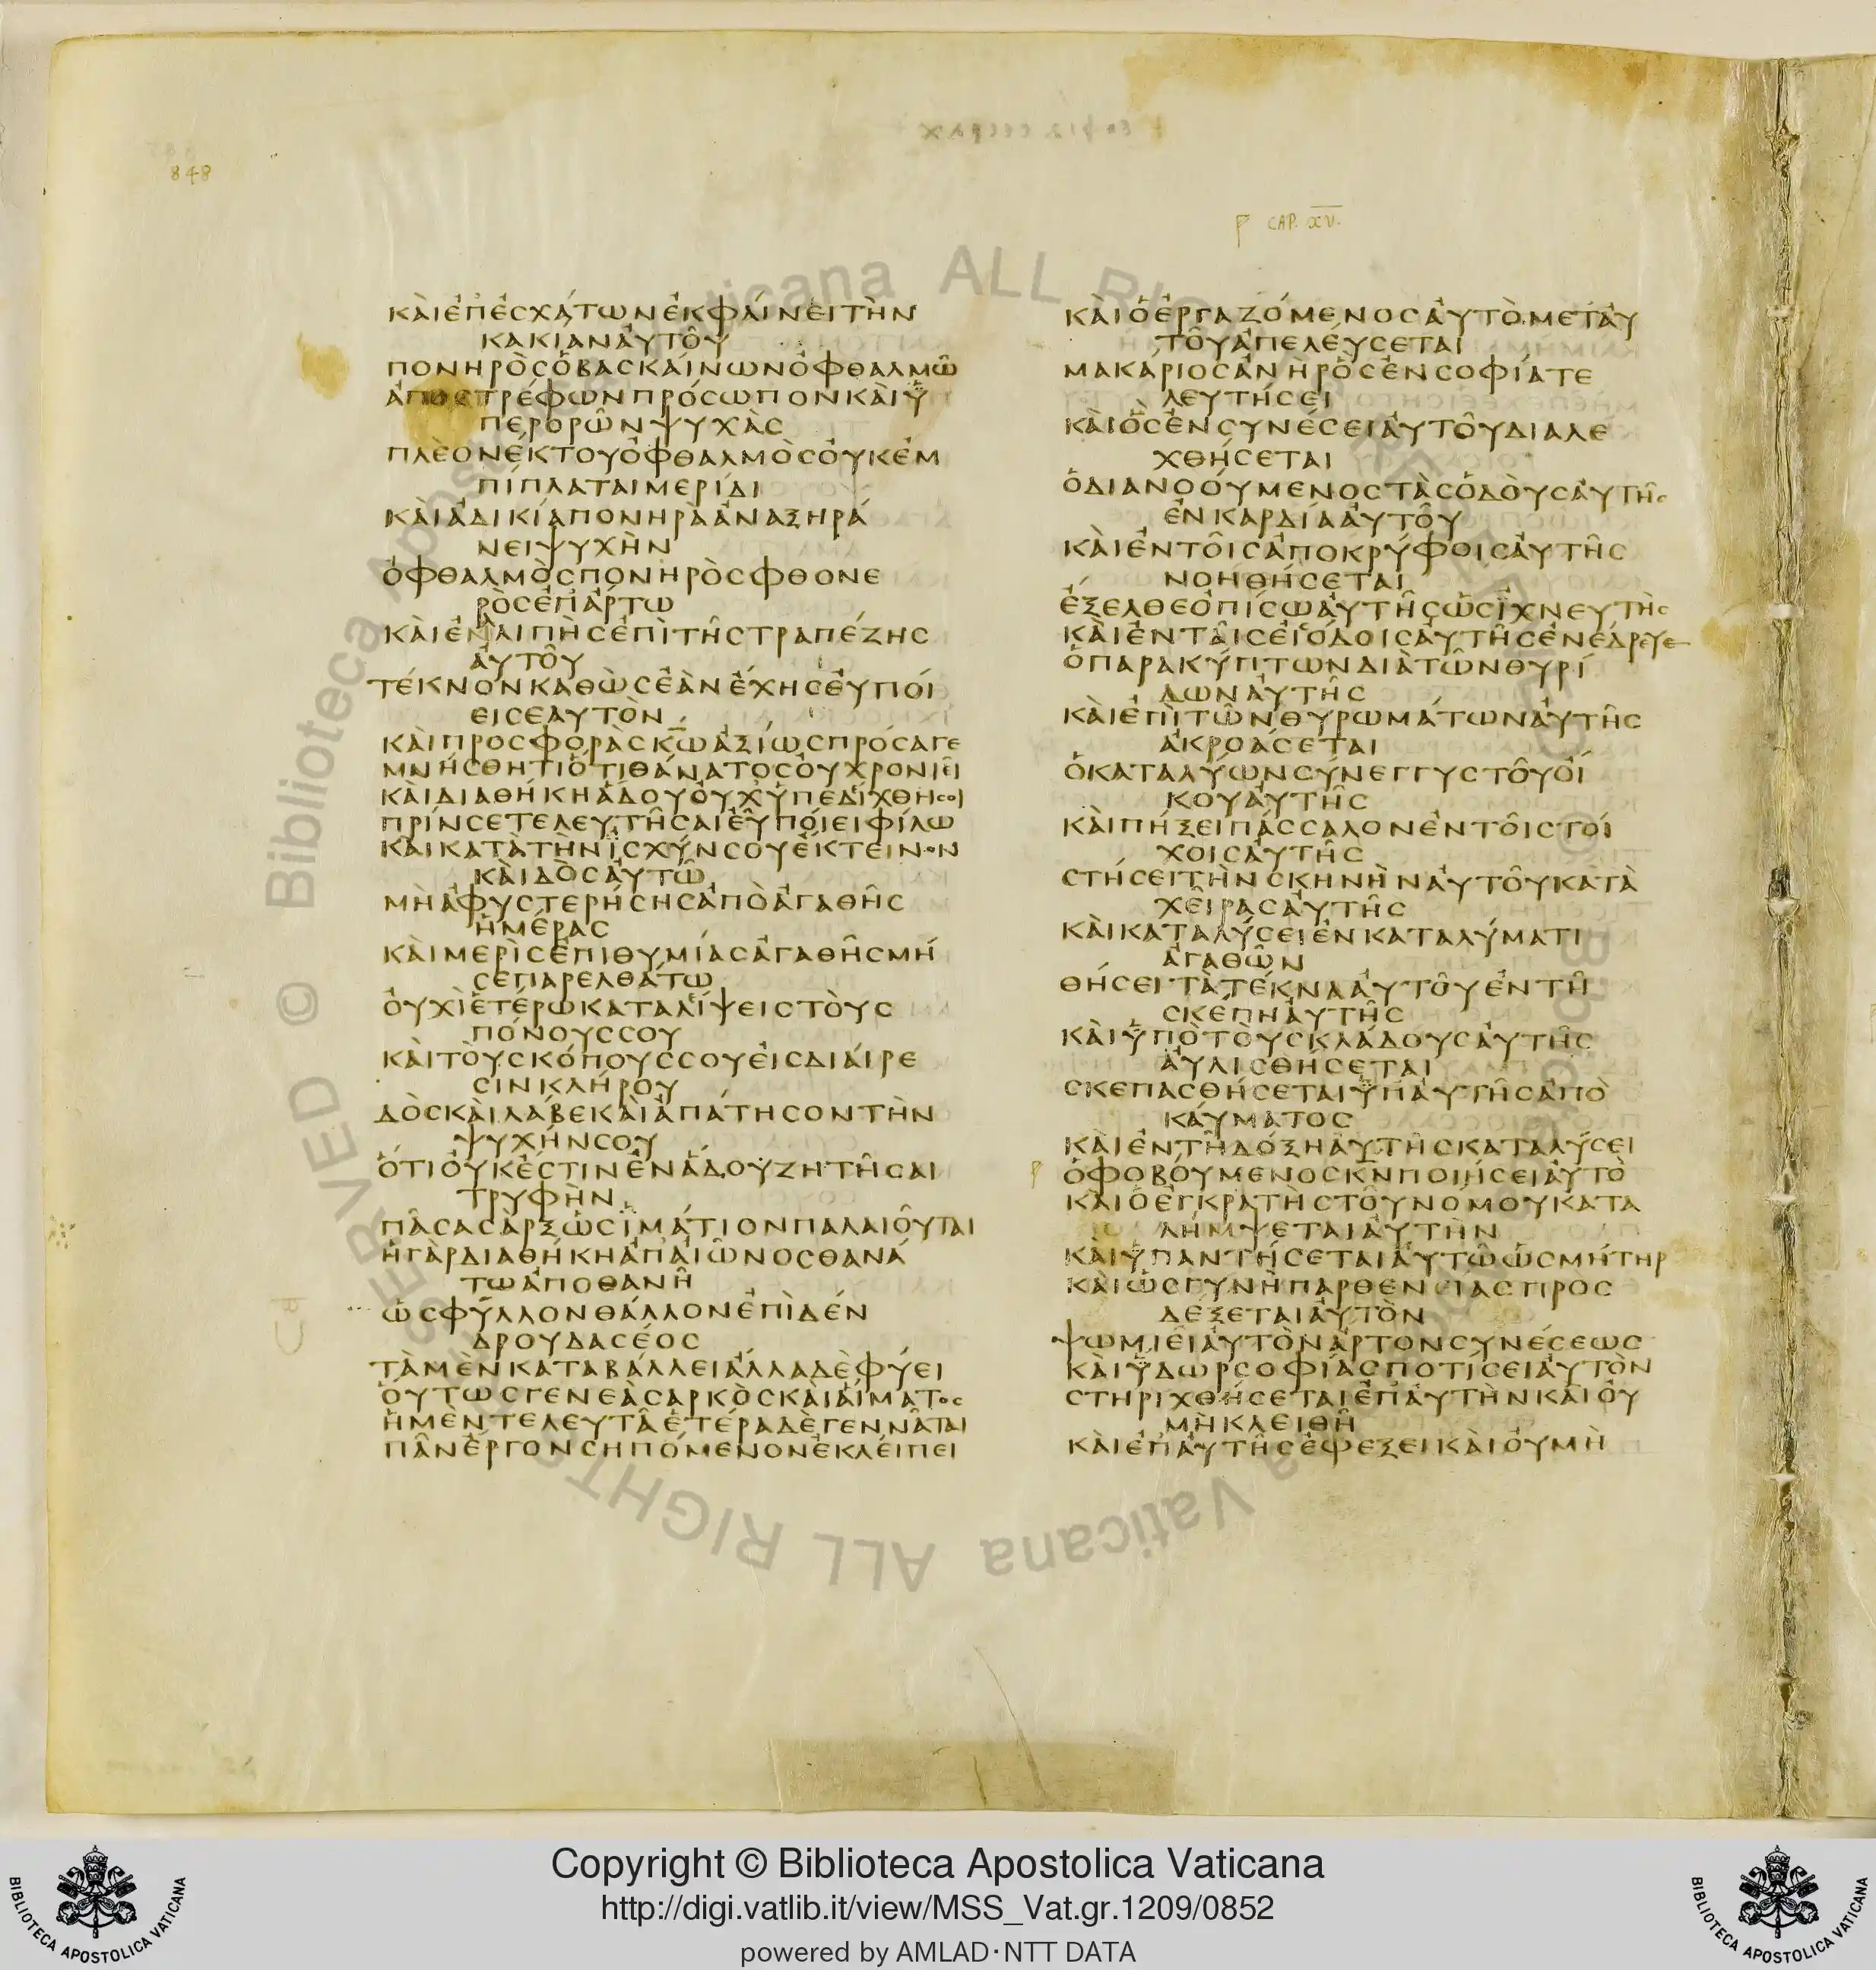 848
ϼ CAP. XV.
ΚΑῚἘΠ̓ἘΣΧΆΤΩΝἘΚΦΑΊΝΕΙΤῊΝ
ΚΑΚΙΑΝΑΥ̓ΤΟΥ͂
ΠΟΝΗΡῸΣὉΒΑΣΚΑΊΝΩΝὈΦΘΑΛΜΩ͂
ἈΠΟΣΤΡΈΦΩΝΠΡΌΣΩΠΟΝΚΑῚΫ
ΠΕΡΟΡΩ͂ΝΨΥΧᾺΣ
ΠΛΕΟΝΈΚΤΟΥὈΦΘΑΛΜῸΣΟΥ̓ΚἘΜ
ΠΊΠΛΑΤΑΙΜΕΡΊΔΙ
ΚΑῚἈΔΙΚΊΑΠΟΝΗΡᾺἈΝΑΞΗΡΑ
ΝΕΙΨΥΧῊΝ
ὈΦΘΑΛΜῸΣΠΟΝΗΡῸΣΦΘΟΝΕ
ΡῸΣἘΠ̓ἌΡΤΩ
ΚΑῚἘΝΛΙΠῊΣἘΠῚΤΗ͂ΣΤΡΑΠΈΖΗΣ
ΑΥ̓ΤΟΥ͂
ΤΈΚΝΟΝΚΑΘῺΣἘᾺΝἜΧΗΣΕΥ̓ΠΟΊ
ΕΙΣΕΑΥΤῸΝ
ΚΑΙΠΡΟΣΦΟΡᾺΣΚΩ̄ἈΞΊΩΣΠΡΌΣΑΓΕ
ΜΝΉΣΘΗΤΙὍΤΙΘΆΝΑΤΟΣΟΥ̓ΧΡΟΝΙΕΙ͂
ΚΑΙΔΙΑΘΉΚΗἍΔΟΥΟΥ̓ΧΫΠΕΔΊΧΘΗΣΟΙ
ΠΡΊΝΣΕΤΕΛΕΥΤΗ͂ΣΑΙΕΥ͂ΠΟΊΕΙΦΊΛΩ
ΚΑΙΚΑΤᾺΤῊΝΪΣΧΎΝΣΟΥἜΚΤΕΙΝΟΝ
ΚΑῚΔῸΣΑΥ̓ΤΩ͂
ΜῊἈΦΥΣΤΕΡΉΣΗΣἈΠῸἈΓΑΘΗ͂Σ
ἩΜΈΡΑΣ
ΚΑῚΜΕΡῚΣἘΠΙΘΥΜΊΑΣἈΓΑΘΗ͂ΣΜΉ
ΣΕΠΑΡΕΛΘΆΤΩ
ΟΥ̓ΧῚἙΤΈΡΩΚΑΤΑΛΊΨΕΙΣΤΟῪΣ
ΠΌΝΟΥΣΣΟΥ
ΚΑῚΤΟῪΣΚΌΠΟΥΣΣΟΥΕἸΣΔΙΑΊΡΕ
ΣΙΝΚΛΉΡΟΥ
ΔῸΣΚΑῚΛΆΒΕΚΑῚἈΠΆΤΗΣΟΝΤῊΝ
ΨΥΧΉΝΣΟΥ
ὍΤΙΟΥ̓ΚἜΣΤΙΝἘΝἍΔΟΥΖΗΤΗ͂ΣΑΙ
ΤΡΥΦῊΝ
ΠΑ͂ΣΑΣᾺΡΞὩΣΪΜΆΤΙΟΝΠΑΛΑΙΟΥ͂ΤΑΙ
ἩΓᾺΡΔΙΑΘΉΚΗἈΠ̓ΑΙΩ͂ΝΟΣΘΑΝΆ
ΤΩἈΠΟΘΑΝΗ͂
ὩΣΦΎΛΛΟΝΘΆΛΛΟΝἘΠῚΔΈΝ
ΔΡΟΥΔΑΣΈΟΣ
ΤᾺΜῈΝΚΑΤΑΒΆΛΛΕΙἌΛΛΑΔῈΦΎΕΙ
ΟὝΤΩΣΓΕΝΕᾺΣΑΡΚῸΣΚΑῚΑἽΜΑΤΟΣ
ἩΜῈΝΤΕΛΕΥΤΑ͂ἙΤΈΡΑΔῈΓΕΝΝΑ͂ΤΑΙ
ΠΑ͂ΝἜΡΓΟΝΣΗΠΌΜΕΝΟΝἘΚΛΕΊΠΕΙ
ΚΑῚὉἘΡΓΑΖΌΜΕΝΟΣΑΥ̓ΤῸΜΕΤ̓ΑΥ̓
ΤΟΥ͂ἈΠΕΛΕΎΣΕΤΑΙ
ΜΑΚΆΡΙΟΣἈΝῊΡὋΣἘΝΣΟΦΊΑΤΕ
ΛΕΥΤΉΣΕΙ
ΚΑῚὋΣἘΝΣΥΝΈΣΕΙΑΥ̓ΤΟΥ͂ΔΙΑΛΕ
ΧΘΉΣΕΤΑΙ
ὉΔΙΑΝΟΟΎΜΕΝΟΣΤᾺΣὉΔΟῪΣΑΥ̓ΤΗ͂Σ
ἘΝΚΑΡΔΊΑΑΥ̓ΤΟΥ͂
ΚΑῚἘΝΤΟΙ͂ΣἈΠΟΚΡΎΦΟΙΣΑΥ̓ΤΗ͂Σ
ΝΟΗΘΉΣΕΤΑΙ
ἜΞΕΛΘΕὈΠΊΣΩΑΥ̓ΤΗ͂ΣὩΣΪΧΝΕΥΤῊΣ
ΚΑῚἘΝΤΑΙ͂ΣΕἸΣΌΔΟΙΣΑΥ̓ΤΗ͂ΣἘΝΈΔΡΕΥΕ
ὉΠΑΡΑΚΎΠΤΩΝΔΙᾺΤΩ͂ΝΘΥΡΊ
ΔΩΝΑΥ̓ΤΗ͂Σ
ΚΑῚἘΠῚΤΩ͂ΝΘΥΡΩΜΆΤΩΝΑΥ̓ΤΗ͂Σ
ἈΚΡΟΆΣΕΤΑΙ
ὉΚΑΤΑΛΎΩΝΣΎΝΕΓΓΥΣΤΟΥ͂ΟἼ
ΚΟΥΑΥ̓ΤΗ͂Σ
ΚΑῚΠΉΞΕΙΠΆΣΣΑΛΟΝἘΝΤΟΙ͂ΣΤΟΊ
ΧΟΙΣΑΥ̓ΤΗ͂Σ
ΣΤΉΣΕΙΤῊΝΣΚΗΝῊΝΑΥ̓ΤΟΥ͂ΚΑΤᾺ
ΧΕΙ͂ΡΑΣΑΥ̓ΤΗ͂Σ
ΚΑῚΚΑΤΑΛΎΣΕΙἘΝΚΑΤΑΛΎΜΑΤΙ
ἈΓΑΘΩ͂Ν
ΘΉΣΕΙΤᾺΤΈΚΝΑΑΥ̓ΤΟΥ͂ἘΝΤΗ͂
ΣΚΈΠΗΑΥ̓ΤΗ͂Σ
ΚΑῚΫΠῸΤΟῪΣΚΛΆΔΟΥΣΑΥ̓ΤΗ͂Σ
ΑΥ̓ΛΙΣΘΉΣΕΤΑΙ
ΣΚΕΠΑΣΘΉΣΕΤΑΙΫΠ̓ΑΥ̓ΤΗ͂ΣἈΠῸ
ΚΑΎΜΑΤΟΣ
ΚΑῚἘΝΤΗ͂ΔΌΞΗΑΥ̓ΤΗ͂ΣΚΑΤΑΛΎΣΕΙ
ὉΦΟΒΟΎΜΕΝΟΣΚ̄Ν̄ΠΟΙΉΣΕΙΑΥ̓ΤΌ
ΚΑΙὉἘΓΚΡΑΤῊΣΤΟΥ͂ΝΌΜΟΥΚΑΤΑ
ΛΉΜΨΕΤΑΙΑΥ̓ΤῊΝ
ΚΑῚΫΠΑΝΤΉΣΕΤΑΙΑΥ̓ΤΩ͂ὩΣΜΉΤΗΡ
ΚΑῚὩΣΓΥΝῊΠΑΡΘΕΝΕΙΑΣΠΡΟΣ
ΔΈΞΕΤΑΙΑΥ̓ΤῸΝ
ΨΩΜΙΕΙ͂ΑΥ̓ΤῸΝἌΡΤΟΝΣΥΝΈΣΕΩΣ
ΚΑῚΫΔΩΡΣΟΦΊΑΣΠΟΤΊΣΕΙΑΥ̓ΤῸΝ
ΣΤΗΡΙΧΘΉΣΕΤΑΙἘΠ̓ΑΥ̓ΤῊΝΚΑΙΟΥ̓
ΜῊΚΛΕΙΘΗ͂
ΚΑῚἘΠ̓ΑΥ̓ΤΗ͂ΣἘΦΕΞΕΙΚΑῚΟΥ̓ΜῊ
Copyright © Biblioteca Apostolica Vaticana
http://digi.vatlib.it/view/MSS_Vat.gr.1209/0852
powered by AMLAD·NTT DATA
BIBLIOTECA APOSTOLICA VATICANA
BIBLIOTECA APOSTOLICA VATICANA
© Biblioteca Apostolica Vaticana ALL RIGHTS RESERVED